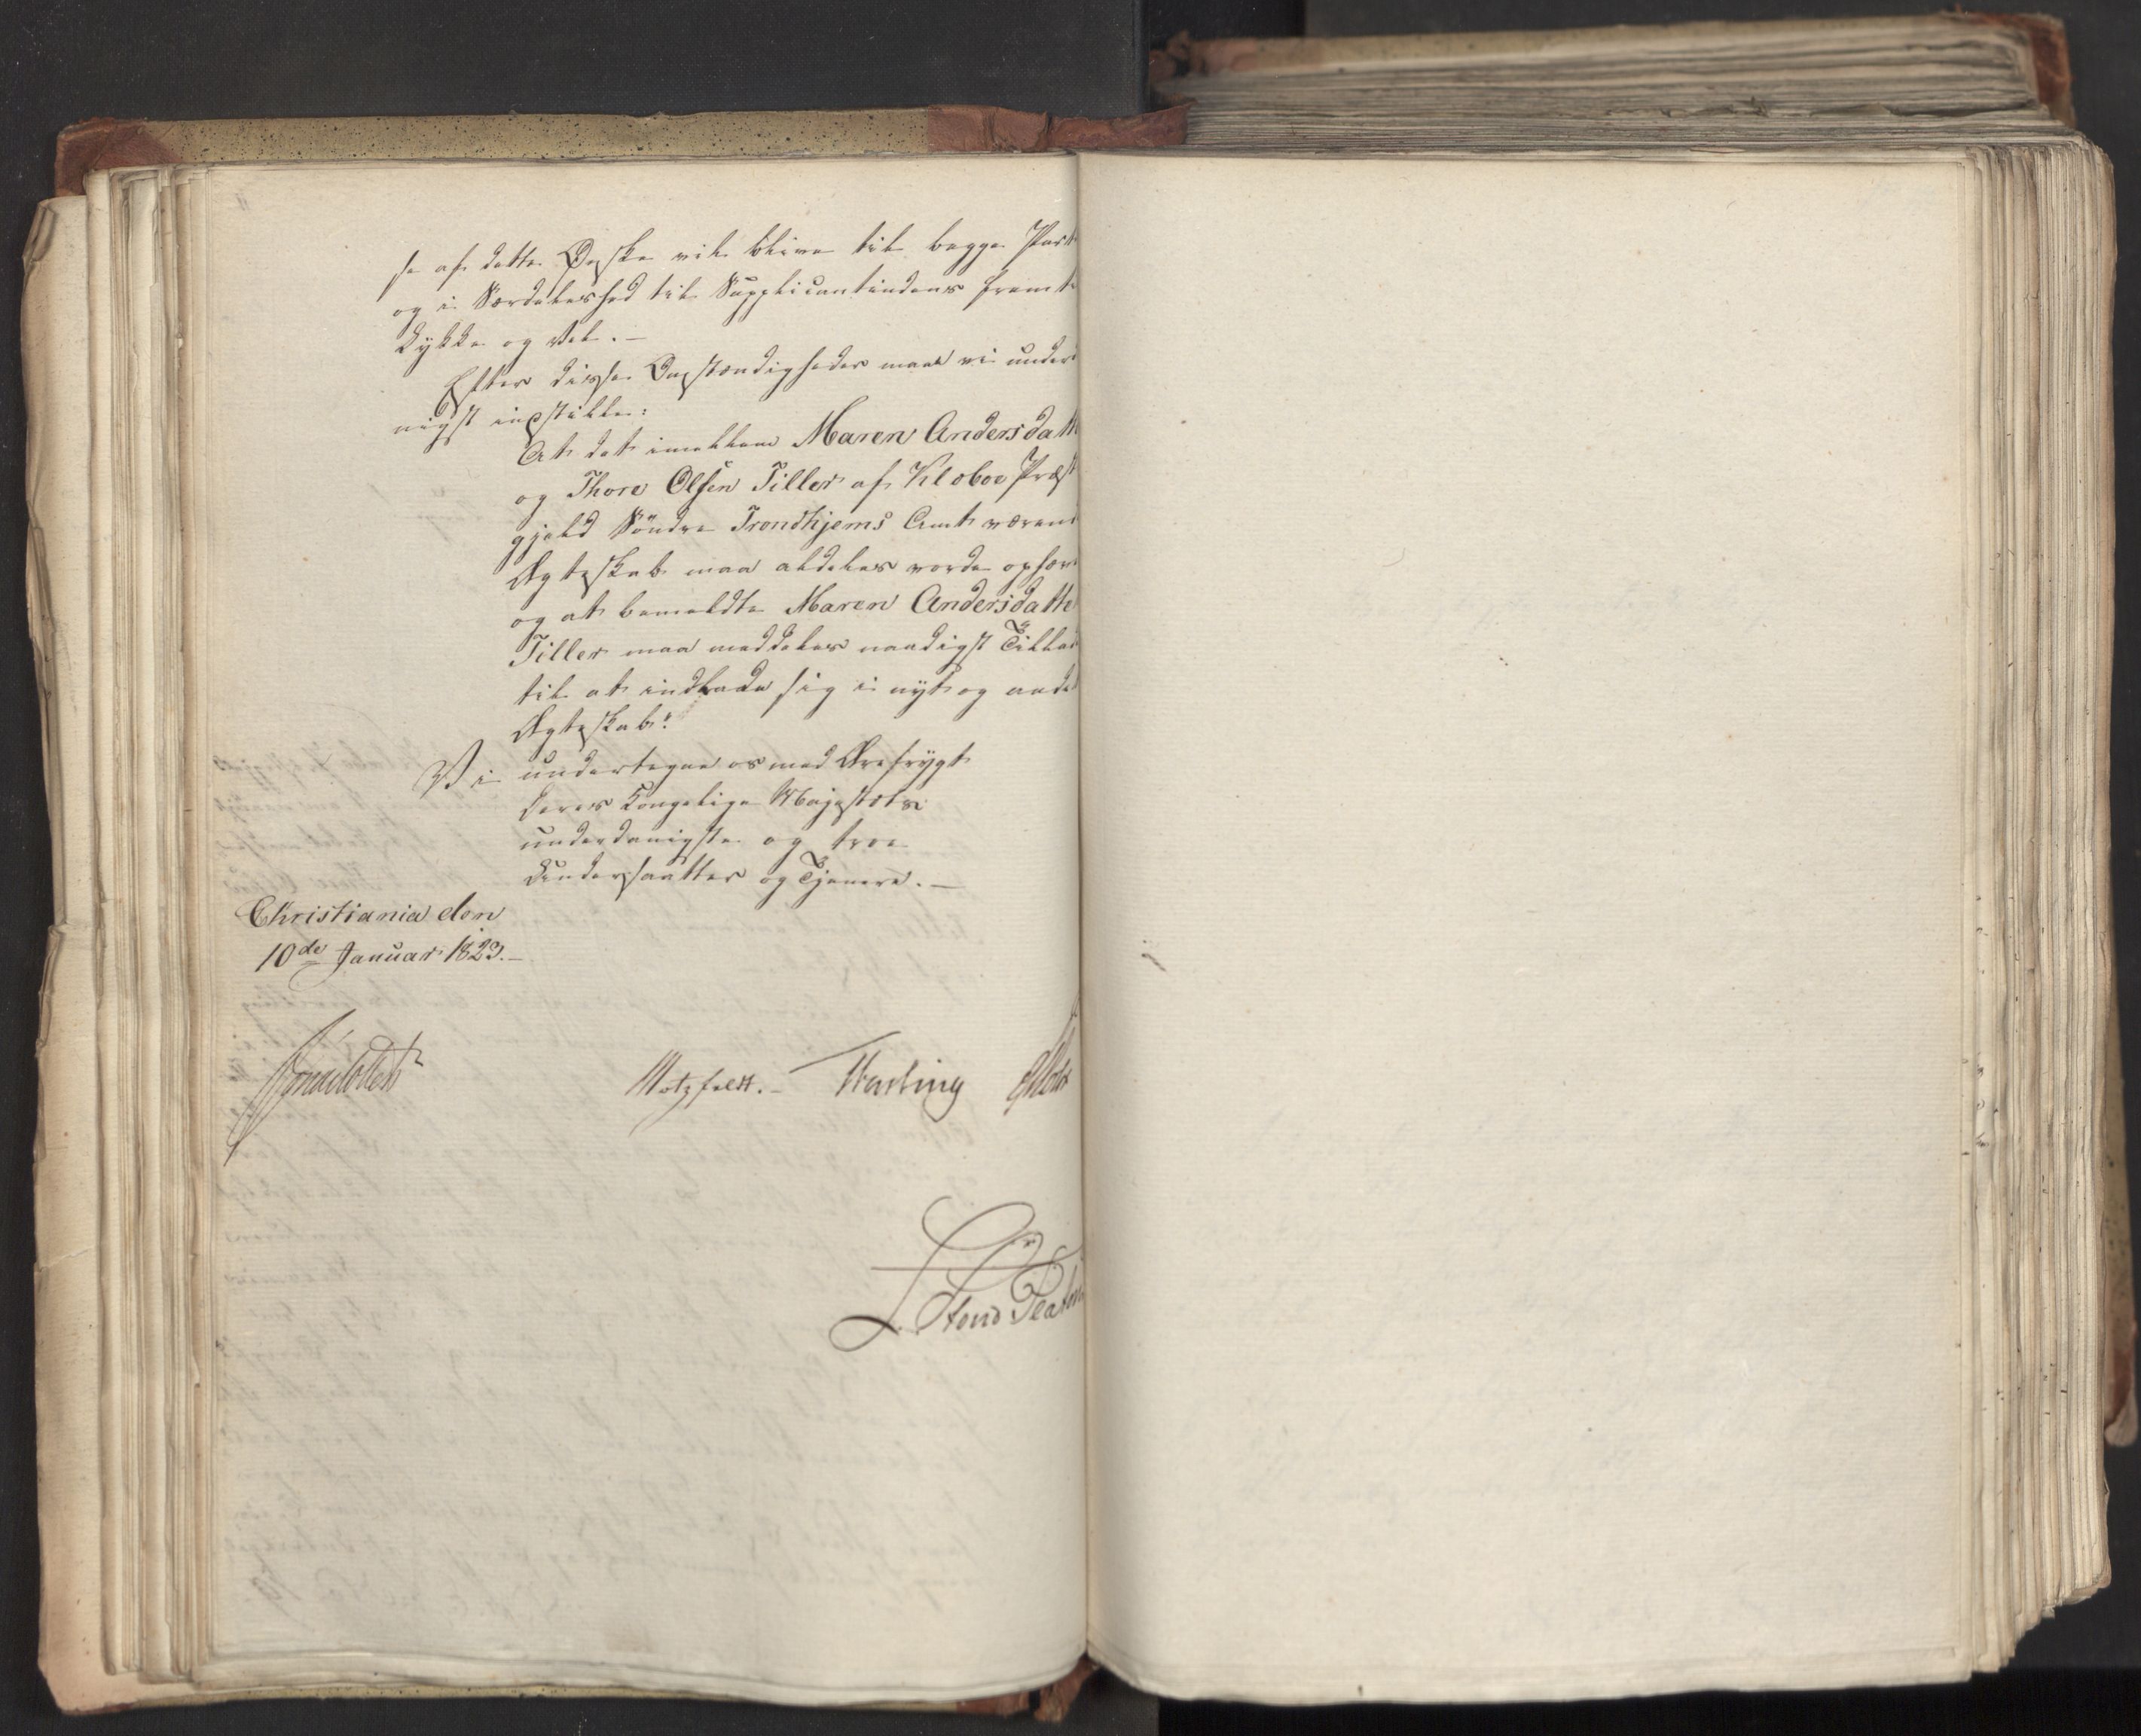 se af dette Ønske vil blive til begge Part
og i Særdeleshed til Supplicantindens fremt
Lykke og Vel. —
Efter disse Omstændigheder maae vi under
nigst indstille:
At det imellem Maren Andersdatte
og Thore Olsen Tiller af Kloboe Præst
gjeld Söndre Trondhjems Amt væren
Ægteskab maa aldeles vorde ophæv
og at bemeldte Maren Andersdatte
Tiller maa meddeles naadigst Tillad
til at indlade sig i nyt og andet
Ægteskab."
Vi undertegne os med Ærefrygt
Deres Kongelige Majestæts
underdanigste og troe
Undersaatter og Tjenere. —
Christiania den
10de Januar 1823. —
Motzfeldt. —